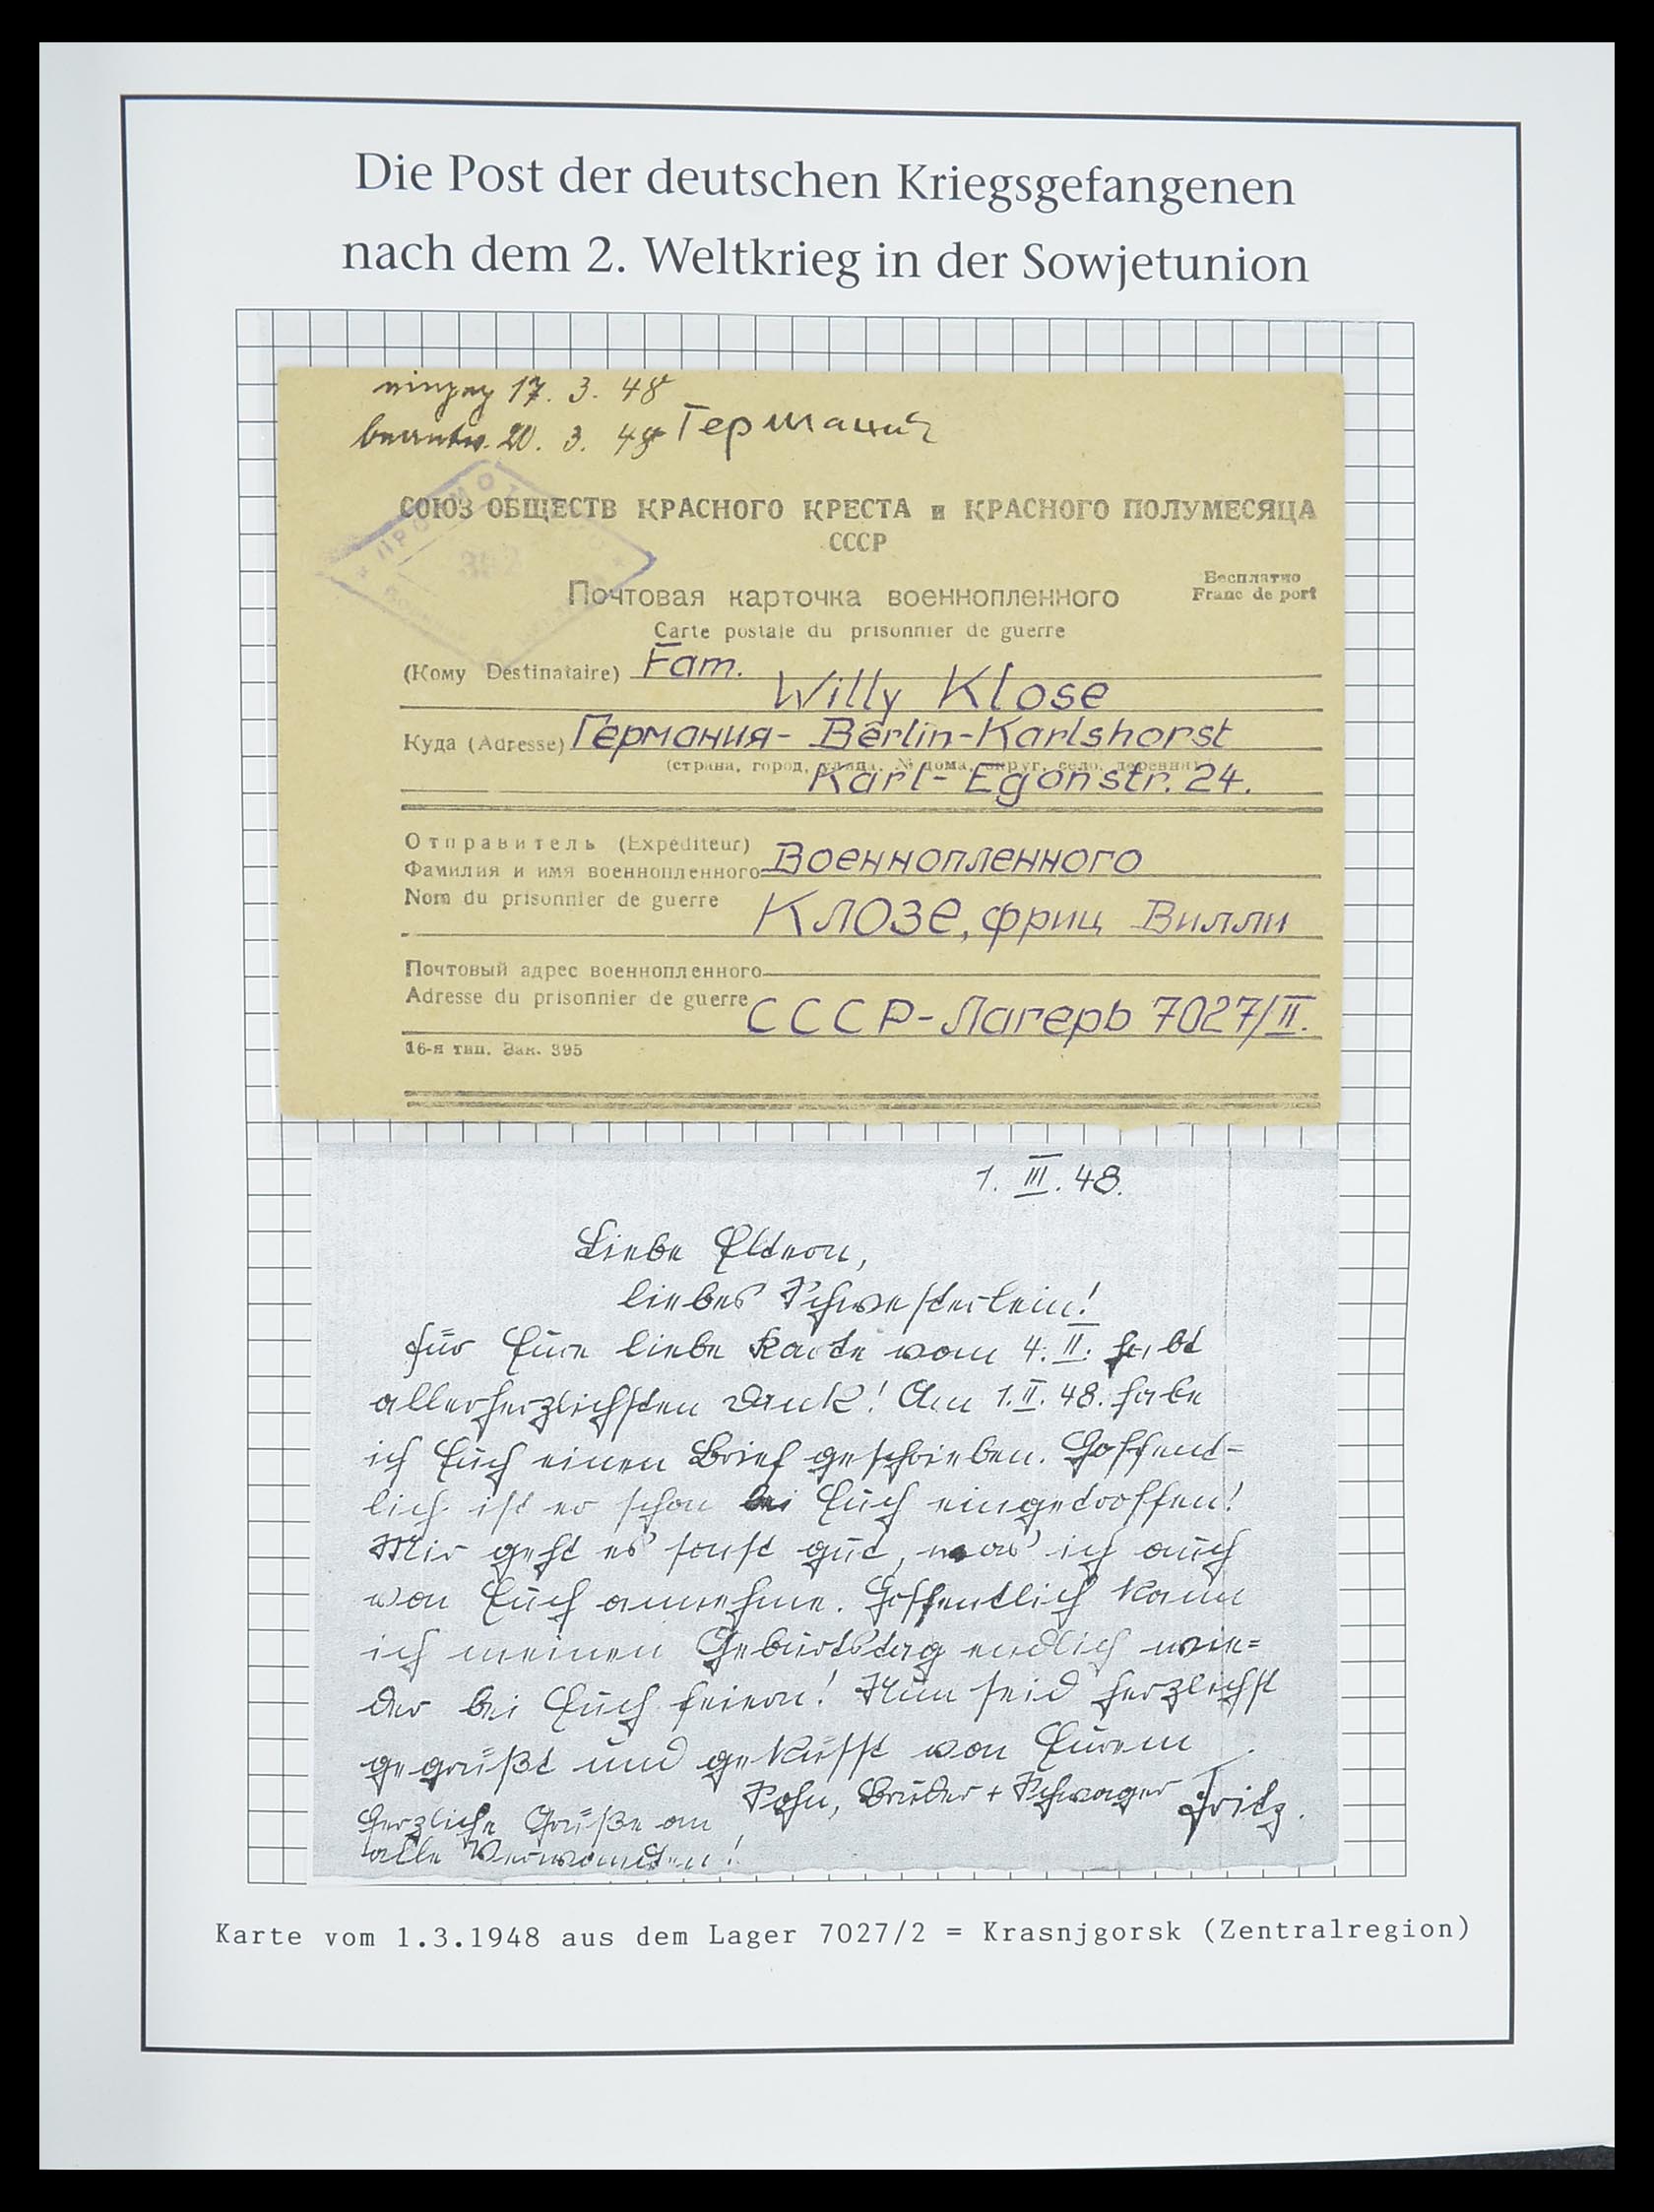 Die Post der deutschen Kriegsgefangenen
nach dem 2. Weltkrieg in der Sowjetunion
eingeg 17. 3. 48
beantw. 20. 3. 48 Германия
СОЮЗ ОБЩЕСТВ КРАСНОГО КРЕСТА и КРАСНОГО ПОЛУМЕСЯЦА
СССР
Почтовая карточка военнопленного
Бесплатно
Franc de port
Carte postale du prisonnier de guerre
(Кому Destinataire) Fam.
Willy Klose
Куда (Adresse) Германия- Berlin-Karlshorst
(страна, город, улица, № дома, округ, село, деревня)
Karl-Egonstr. 24.
Отправитель (Expéditeur)
Фамилия и имя военнопленного Военнопленного
Nom du prisonnier de guerre
Клозе, фриц Вилли
Почтовый адрес военнопленного
Adresse du prisonnier de guerre СССР-Лагерь 7027/II.
16-я тип. Зак. 395
1. III. 48.
Liebe Eltern,
liebes Schwesterlein!
Für Eure liebe Karte vom 4. II. habt
allerherzlichsten Dank! Am 1. II. 48. habe
ich Euch einen Brief geschrieben. Hoffent-
lich ist er schon bei Euch eingetroffen!
Mir geht es sonst gut, was ich auch
von Euch annehme. Hoffentlich kann
ich meinen Geburtstag endlich wie=
der bei Euch feiern! Nun seid herzlichst
gegrüßt und geküsst von Eurem
Sohn, Bruder + Schwager Fritz.
Herzliche Grüße an
alle Verwandten!
Karte vom 1.3.1948 aus dem Lager 7027/2 = Krasnjgorsk (Zentralregion)